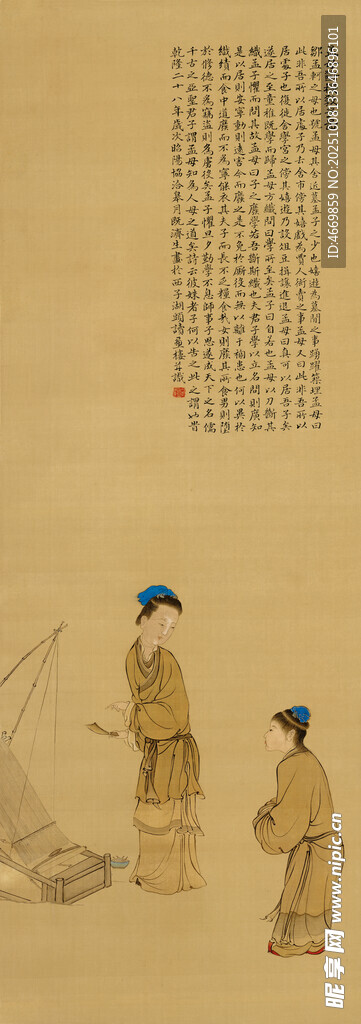 鄒孟軻之母也號孟母其舍近墓孟子之少也嬉遊為墓間之事踴躍築埋孟母曰
此非吾所以居處子乃去舍市傍其嬉戲為賈人衒賣之事孟母又曰此非吾所以
居處子也復徙舍學宮之傍其嬉遊乃設俎豆揖讓進退孟母曰真可以居吾子矣
遂居之至童稚既學而歸孟母方織問曰學所至矣孟子曰自若也孟母以刀斷其
織孟子懼而問其故孟母曰子之廢學若吾斷斯織也夫君子學以立名問則廣知
是以居則安寧動則遠害今而廢之是不免於厮役而無以離于禍患也何以異於
織績而食中道廢而不為寧能衣其夫子而長不乏糧食哉女則廢其所食男則墮
於修德不為竊盜則為虜役矣孟子懼旦夕勤學不息師事子思遂成天下之名儒
千古之亞聖君子謂孟母知為人母之道矣詩云彼姝者子何以告之此之謂也昔
乾隆二十八年歲次昭陽協洽皋月既濟生畫於西子湖頭詩畫樓并識
ID:4669859 NO:20251008133646896101
昵享网 www.nipic.cn